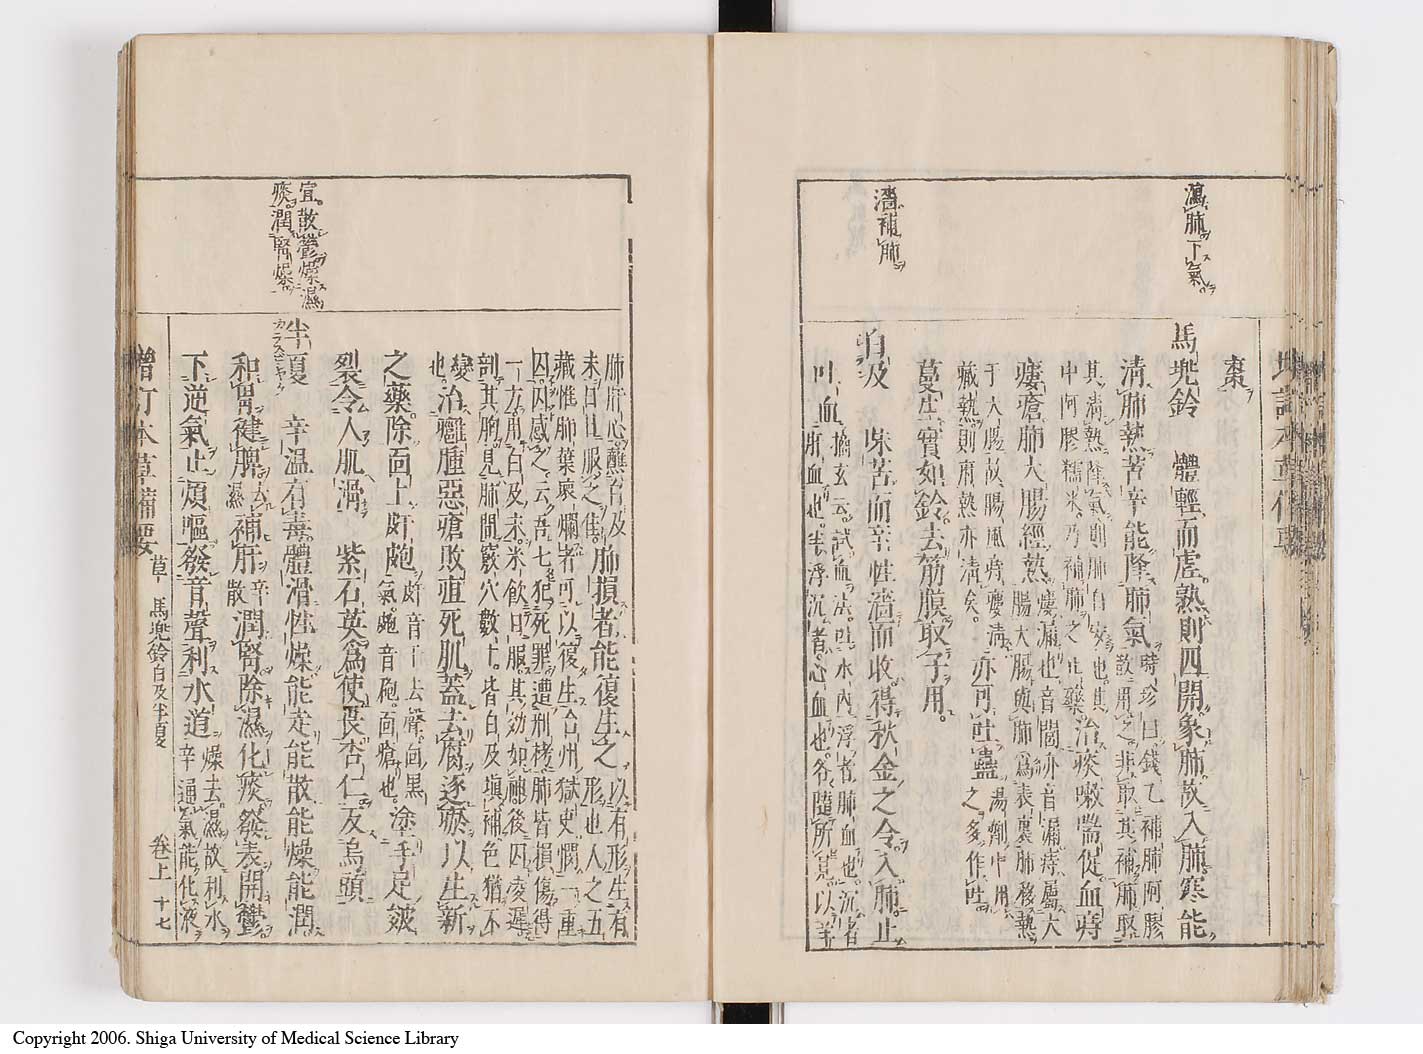 瀉肺下氣
澀補肺
棗
馬兜鈴 體輕而虛熟則四開象肺故入肺寒能
清肺熱苦辛能降肺氣時珍曰錢乙補肺阿膠散用之非取其補肺取
其清熱降氣則肺自安也其中阿膠糯米乃補肺之正藥治痰嗽喘促血痔
瘻瘡肺大腸經熱瘻漏也音閭亦音漏痔屬大腸大腸與肺爲表裏肺移熱
于大腸故腸風痔瘻清臟熱則腑熱亦清矣亦可吐蠱湯劑中用之多作吐
蔓生實如鈴去筋膜取子用
白及 味苦而辛性濇而收得秋金之令入肺止
吐血摘玄云試血法吐水內浮者肺血也沉者肝血也半浮沉者心血也各隨所見以羊
肺肝心蘸白及末日日服之佳肺損者能復生之以有形生有形也人之五
藏惟肺葉壞爛者可以復生台州獄吏憫一重
囚囚感之云吾七犯死罪遭刑栲肺皆損傷得
一方用白及末米飲日服其効如神後囚凌遲
剖其胸見肺間竅穴數十皆白及塡補色猶不
變也治癰腫惡瘡敗疽死肌蓋去腐逐瘀以生新
之藥除面上皯皰皯音干去聲面黑氣皰音砲面瘡也塗手足皴
裂令人肌滑 紫石英爲使畏杏仁反烏頭
宜散鬱燥濕
痰潤腎燥
半夏 辛温有毒體滑性燥能走能散能燥能潤
カラスビシヤク
和胃健脾去濕補肝辛散潤腎除濕化痰發表開鬱
下逆氣止煩嘔發音聲利水道燥去濕故利水辛通氣能化液
增訂本草備要 草 馬兜鈴白及半夏 卷上 十七